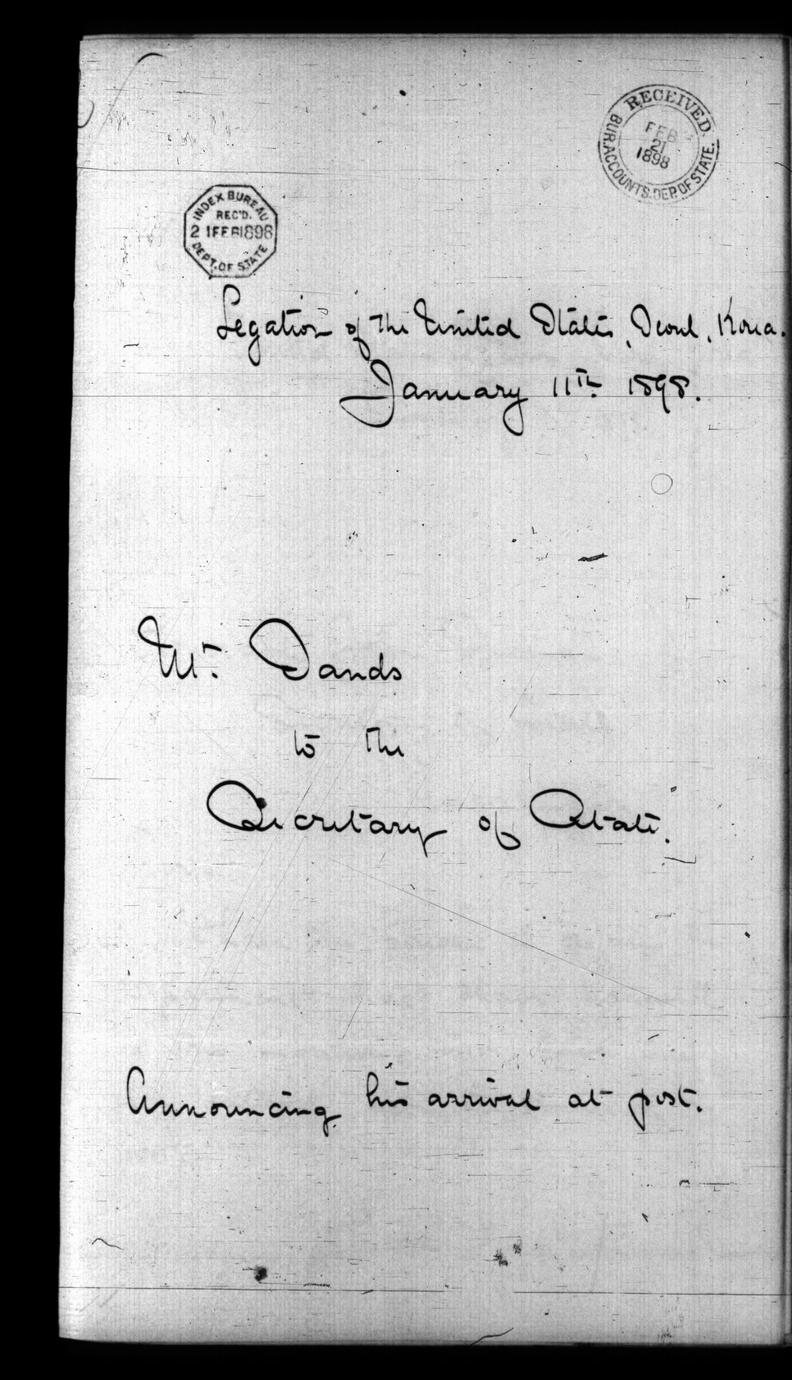 RECEIVED
FEB
21
1898
BUR. ACCOUNTS. DEP. OF STATE.
INDEX BUREAU
REC'D.
21 FEB 1898
DEPT. OF STATE
Legation of the United States, Seoul, Korea.
January 11th 1898.
Mr. Sands
to the
Secretary of State.
Announcing his arrival at post.